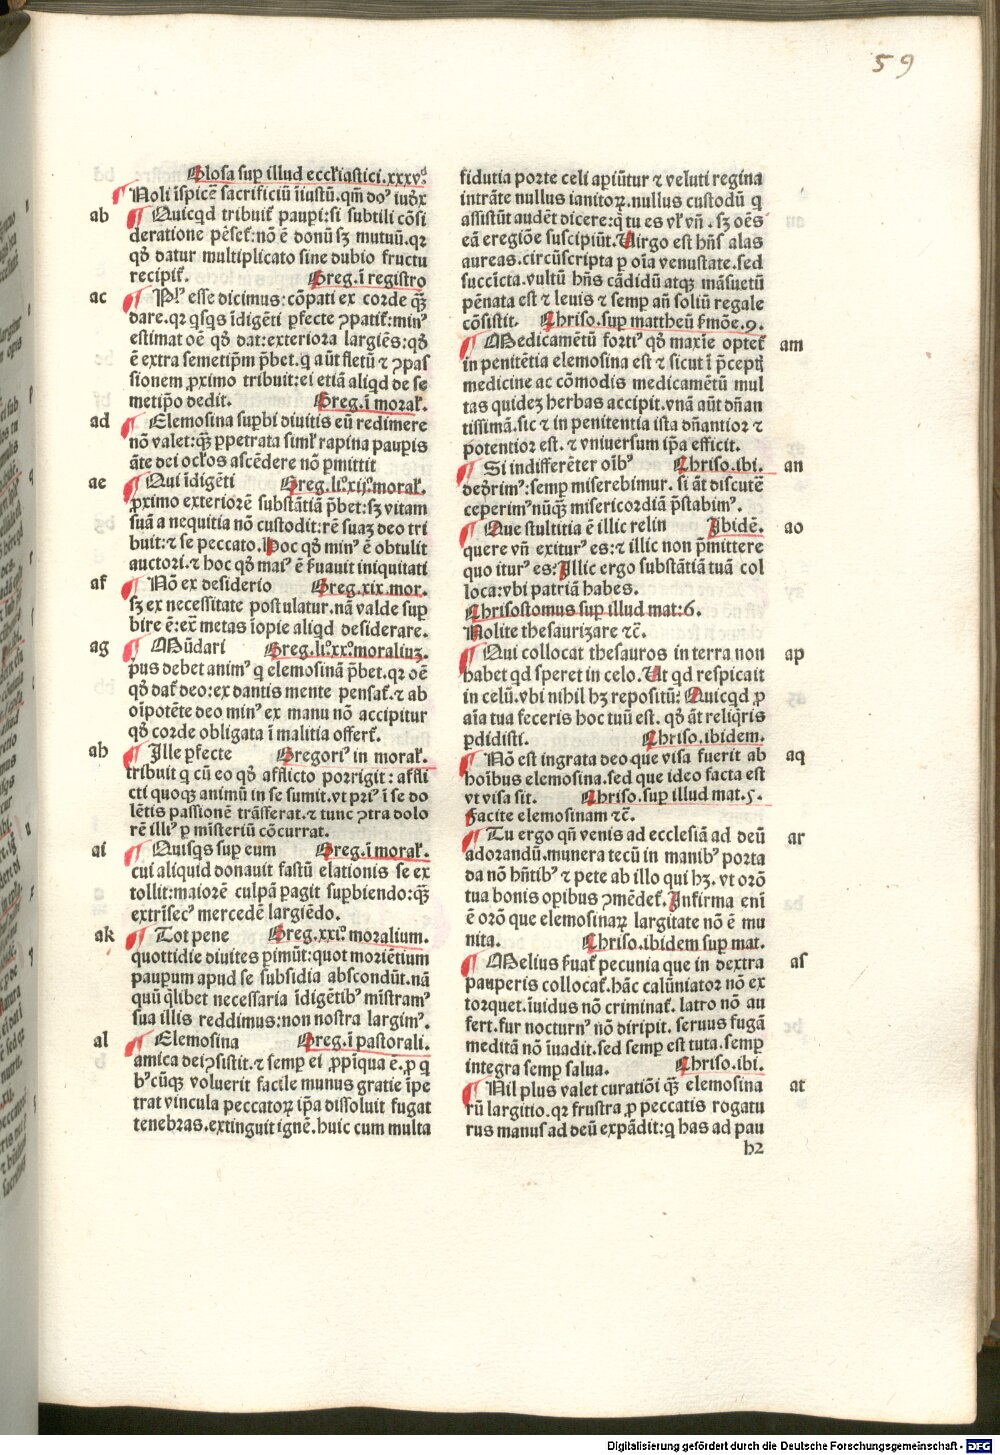 59
Glosa suꝑ illud eccl'iastici.xxxv.
Noli īspicē sacrificiū iīustū.qm̄ doꝰ iudx
ab Quicqd tribuit̄ pauꝑi:si subtili cōsi
deratione pēset̄:nō ē donū sꝫ mutuū.qꝛ
qđ datur multiplicato sine dubio fructu
recipit̄. Greg.ī registro
ac Plꝰ esse dicimus:cōpati ex corde qꝫ̄
dare.qꝛ qsqs īdigēti ꝑfecte ꝯpatit̄:minꝰ
estimat oē qđ dat:exteriora largiēs:qđ
ē extra semetipm̄ p̄bet.q aūt fletū ⁊ ꝯpas
sionem ꝓximo tribuit:ei etiā aliqd de se
metip̄o dedit. Greg.ī moral̄.
ad Elemosina suꝑbi diuitis eū redimere
nō valet:qꝫ̄ ꝑpetrata siml̄ rapina pauꝑis
āte dei ocl'os ascēdere nō ꝑmittit
ae Qui īdigēti Greg.li.xij.moral̄.
ꝓximo exteriorē substātiā p̄bet:sꝫ vitam
suā a nequitia nō custodit:rē suaꝫ deo tri
buit:⁊ se peccato.Hoc qđ minꝰ ē obtulit
auctori.⁊ hoc qđ maiꝰ ē ẜuauit iniquitati
af Nō ex desiderio Greg.xix.mor.
sꝫ ex necessitate postulatur.nā valde suꝑ
bire ē:ex metas īopie aliqd desiderare.
ag Mūdari Greg.li.xx.moraliuꝫ.
pus debet animꝰ q elemosinā p̄bet.qꝛ oē
qđ dat̄ deo:ex dantis mente pensat̄.⁊ ab
oīpotēte deo minꝰ ex manu nō accipitur
qđ corde obligata ī malitia offert̄.
ah Ille ꝑfecte Gregoriꝰ in moral̄.
tribuit q cū eo qđ afflicto porrigit:affli
cti quoqꝫ animū in se sumit.vt priꝰ ī se do
lētis passionē trāsferat.⁊ tunc ꝯtra dolo
rē illiꝰ ꝑ misteriū cōcurrat.
ai Quisqs suꝑ eum Greg.ī moral̄.
cui aliquid donauit fastū elationis se ex
tollit:maiorē culpā ꝑagit suꝑbiendo:qꝫ̄
extrīsecꝰ mercedē largiēdo.
ak Tot pene Greg.xxi.moralium.
quottidie diuites ꝑimūt:quot moriētium
pauꝑum apud se subsidia abscondūt.nā
quū qlibet necessaria īdigētibꝰ mīstramꝰ
sua illis reddimus:non nostra largimꝰ.
al Elemosina Greg.ī pastorali.
amica dei ꝯsistit.⁊ semꝑ ei ꝓpīqua ē.ꝓ q
bꝰcūqꝫ voluerit facile munus gratie īpe
trat vincula peccatoꝝ ip̄a dissoluit fugat
tenebras.extinguit ignē.huic cum multa
fidutia porte celi apiūtur ⁊ veluti regina
intrāte nullus ianitoꝝ.nullus custodū q
assistūt audēt dicere:q̄ tu es vl' vn̄.sꝫ oēs
eā eregiōe suscipiūt.Uirgo est hn̄s alas
aureas.circūscripta ꝑ oīa venustate.sed
succīcta.vultū hn̄s cādidū atqꝫ māsuetū
pēnata est ⁊ leuis ⁊ semꝑ an̄ soliū regale
cōsistit. Chriso.suꝑ mattheū ẜmōe.9.
Medicamētū fortiꝰ qđ maxīe optet̄ am
in penitētia elemosina est ⁊ sicut ī p̄ceptꝭ
medicine ac cōmodis medicamētū mul
tas quideꝫ herbas accipit.vnā aūt dn̄an
tissimā.sic ⁊ in penitentia ista dn̄antior ⁊
potentior est.⁊ vniuersum ip̄a efficit.
Si indifferēter oībꝰ Chriso.ibi. an
dedrimꝰ:semꝑ miserebimur.si āt discutē
ceperimꝰ nūqꝫ misericordiā p̄stabimꝰ.
Que stultitia ē illic relin Ibidē. ao
quere vn̄ exiturꝰ es:⁊ illic non p̄mittere
quo iturꝰ es:Illic ergo substātiā tuā col
loca:vbi patriā habes.
Chrisostomus suꝑ illud mat:6.
Nolite thesaurizare ⁊c̄.
Qui collocat thesauros in terra non ap
habet qd speret in celo.Ut qd respicait
in celū.vbi nihil hꝫ repositū:Quicqd ꝓ
aīa tua feceris hoc tuū est.qđ āt reliqris
ꝑdidisti. Chriso.ibidem.
Nō est ingrata deo que visa fuerit ab aq
hoībus elemosina.sed que ideo facta est
vt visa sit. Chriso.suꝑ illud mat.5.
Facite elemosinam ⁊c̄.
Tu ergo qn̄ venis ad ecclesiā ad deū ar
adorandū.munera tecū in manibꝰ porta
da nō hn̄tibꝰ ⁊ pete ab illo qui hꝫ.vt orō
tua bonis oꝑibus ꝯmēdet̄.Infirma eni
ē orō que elemosinaꝝ largitate nō ē mu
nita. Chriso.ibidem suꝑ mat.
Melius ẜuat̄ pecunia que in dextra as
pauꝑeris collocat̄.hāc calūniator nō ex
torquet.īuidus nō criminat̄.latro nō au
fert.fur nocturnꝰ nō diripit.seruus fugā
meditā nō īuadit.sed semꝑ est tuta.semꝑ
integra semꝑ salua. Chriso.ibi.
Nil plus valet curatiōi qꝫ̄ elemosina at
rū largitio.qꝛ frustra ꝓ peccatis rogatu
rus manus ad deū expādit:q has ad pau
h2
Digitalisierung gefördert durch die Deutsche Forschungsgemeinschaft - DFG